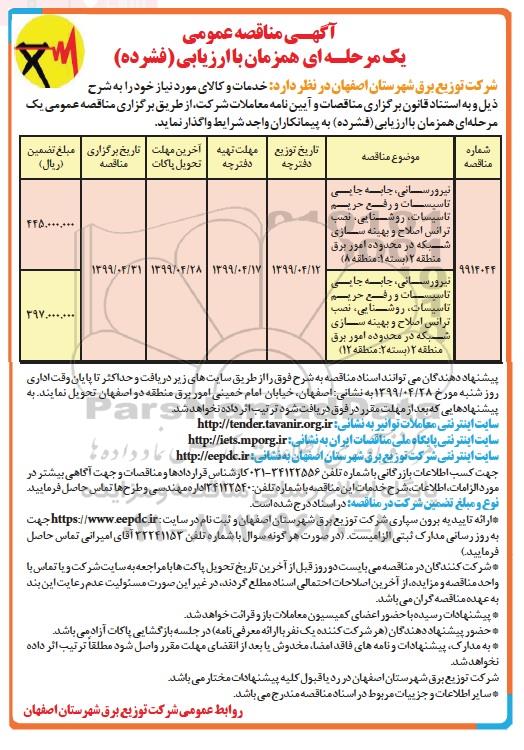 آگهـی مناقصه عمومی
یک مرحلــه ای همزمان با ارزیابی (فشرده)
شرکت توزیع برق شهرستان اصفهان در نظر دارد: خدمات و کالای مورد نیاز خود را به شرح
ذیل و به استناد قانون برگزاری مناقصات و آیین نامه معاملات شرکت، از طریق برگزاری مناقصه عمومی یک
مرحله‌ای همزمان با ارزیابی (فشرده) به پیمانکاران واجد شرایط واگذار نماید.
شماره مناقصه
موضوع مناقصه
تاریخ توزیع دفترچه
مهلت تهیه دفترچه
آخرین مهلت تحویل پاکات
تاریخ برگزاری مناقصه
مبلغ تضمین (ریال)
۹۹۱۴۰۴۴
نیرورســانی، جابــه جایــی
تاسیســات و رفــع حریــم
تاسیسات، روشــنایی، نصب
ترانس اصلاح و بهینه ســازی
شــبکه در محدوده امور برق
منطقه ۲ (بسته ۱: منطقه ۸)
۱۳۹۹/۰۴/۱۲
۱۳۹۹/۰۴/۱۷
۱۳۹۹/۰۴/۲۸
۱۳۹۹/۰۴/۳۱
۴۴۵.۰۰۰.۰۰۰
نیرورســانی، جابــه جایــی
تاسیســات و رفــع حریــم
تاسیسات، روشــنایی، نصب
ترانس اصلاح و بهینه ســازی
شــبکه در محدوده امور برق
منطقه ۲ (بسته ۲: منطقه ۱۲)
۳۹۷.۰۰۰.۰۰۰
پیشنهاد دهندگان می توانند اسناد مناقصه به شرح فوق را از طریق سایت های زیر دریافت و حداکثر تا پایان وقت اداری
روز شنبه مورخ ۱۳۹۹/۰۴/۲۸ به نشانی: اصفهان، خیابان امام خمینی امور برق منطقه دو اصفهان تحویل نمایند. به
پیشنهادهایی که بعد از مهلت مقرر در فوق دریافت شود ترتیب اثر داده نخواهد شد.
سایت اینترنتی معاملات توانیر به نشانی: http://tender.tavanir.org.ir
سایت اینترنتی پایگاه ملی مناقصات ایران به نشانی: http://iets.mporg.ir
سایت اینترنتی شرکت توزیع برق شهرستان اصفهان به نشانی: http://eepdc.ir
جهت کسب اطلاعات بازرگانی با شماره تلفن ۳۴۱۲۲۵۵۶-۰۳۱ کارشناس قراردادها و مناقصات و جهت آگاهی بیشتر در
مورد الزامات، اطلاعات، شرح خدمات این مناقصه با شماره تلفن: ۳۴۱۲۲۵۴۰ اداره مهندسی و طرح‌ها تماس حاصل فرمایید.
نوع و مبلغ تضمین شرکت در مناقصه: در اسناد درج شده است.
*ارائه تاییدیه برون سپاری شرکت توزیع برق شهرستان اصفهان و ثبت نام در سایت: https://www.eepdc.ir جهت
به روز رسانی مدارک ثبتی الزامیست. (در صورت هر گونه سوال با شماره تلفن ۳۲۲۴۱۱۵۳ آقای امیرانی تماس حاصل
فرمایید)
*شرکت کنندگان در مناقصه می بایست دو روز قبل از آخرین تاریخ تحویل پاکت ها با مراجعه به سایت شرکت و یا تماس با
واحد مناقصه و مزایده، از آخرین اصلاحات احتمالی اسناد مطلع گردند، در غیر این صورت مسئولیت عدم رعایت این بند
به عهده مناقصه گران می باشد.
* پیشنهادات رسیده با حضور اعضای کمیسیون معاملات باز و قرائت خواهد شد.
* حضور پیشنهاد دهندگان (هر شرکت کننده یک نفر با ارائه معرفی نامه) در جلسه بازگشایی پاکات آزاد می باشد.
* به مدارک، پیشنهادات و نامه های فاقد امضا، مخدوش یا بعد از انقضای مهلت مقرر واصل شود مطلقا ترتیب اثر داده
نخواهد شد.
شرکت توزیع برق شهرستان اصفهان در رد یا قبول کلیه پیشنهادات مختار می باشد.
* سایر اطلاعات و جزییات مربوط در اسناد مناقصه مندرج می باشد.
روابط عمومی شرکت توزیع برق شهرستان اصفهان